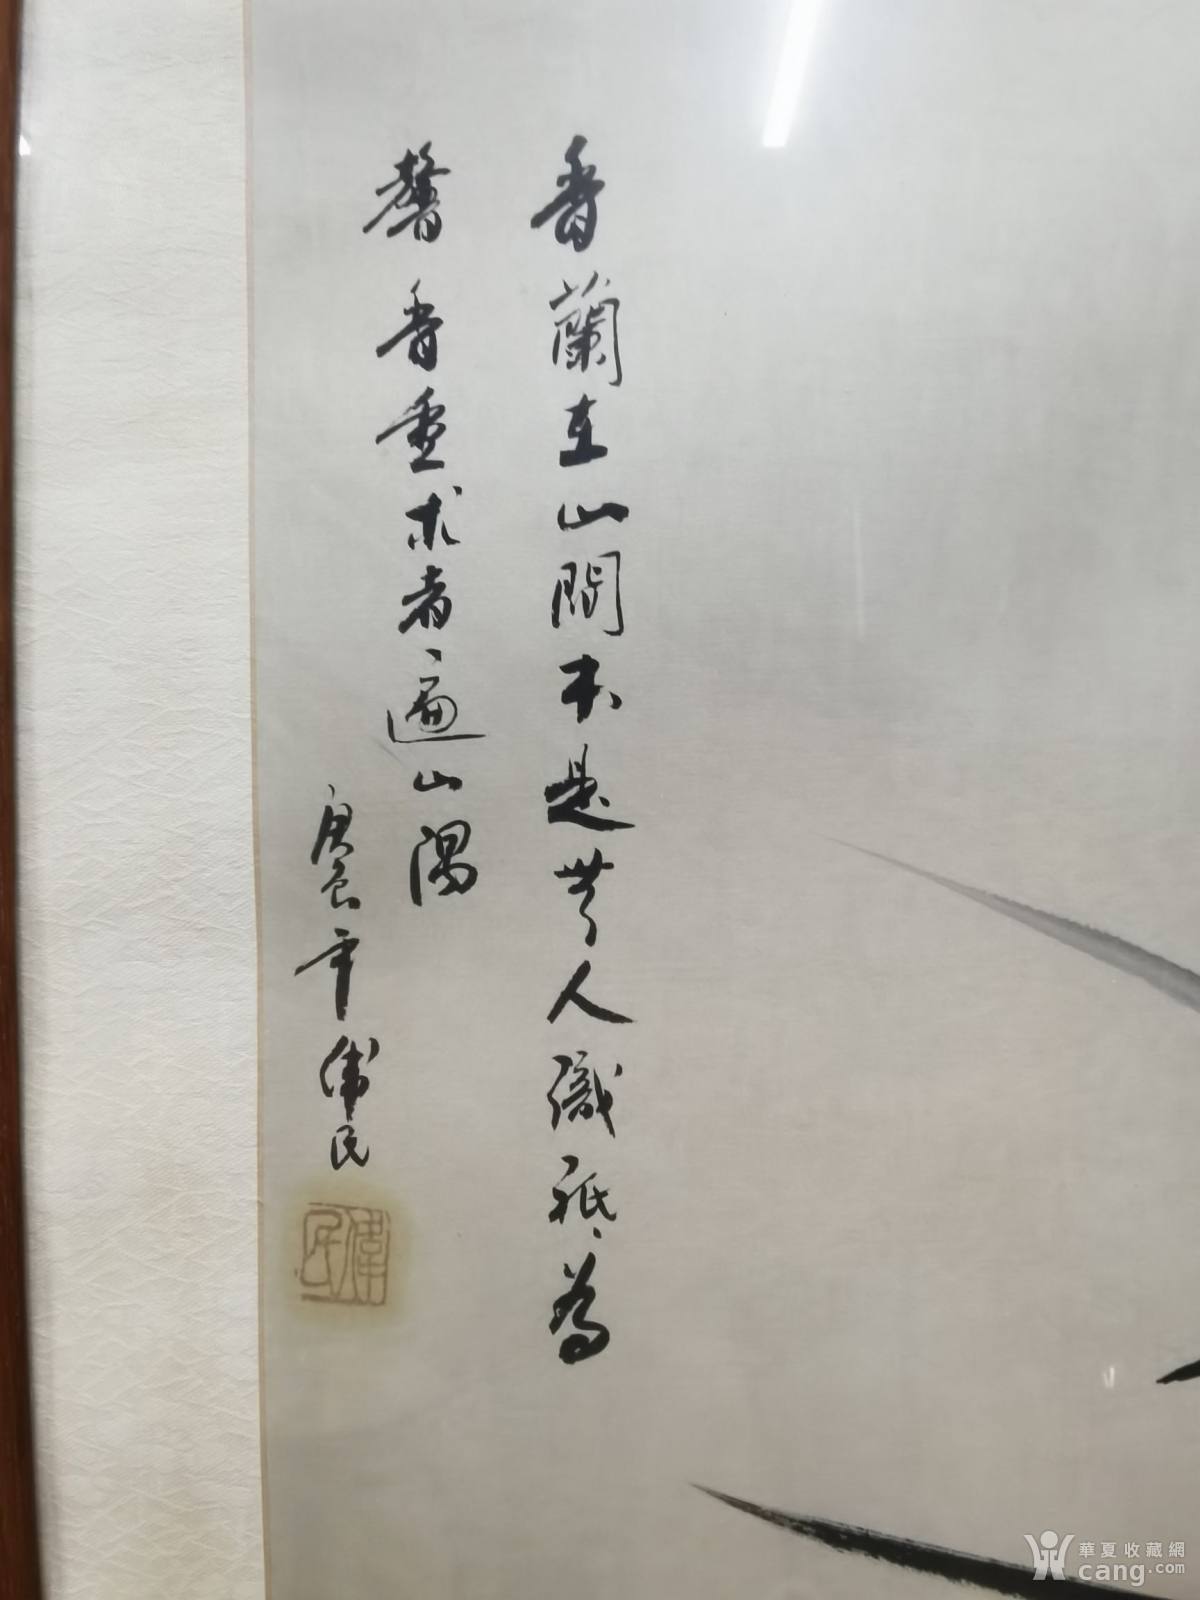 香蘭在山間本是無人識祗為
馨香重求者遍山隅
庚辰年偉民
偉民
華夏收藏網
cang.com